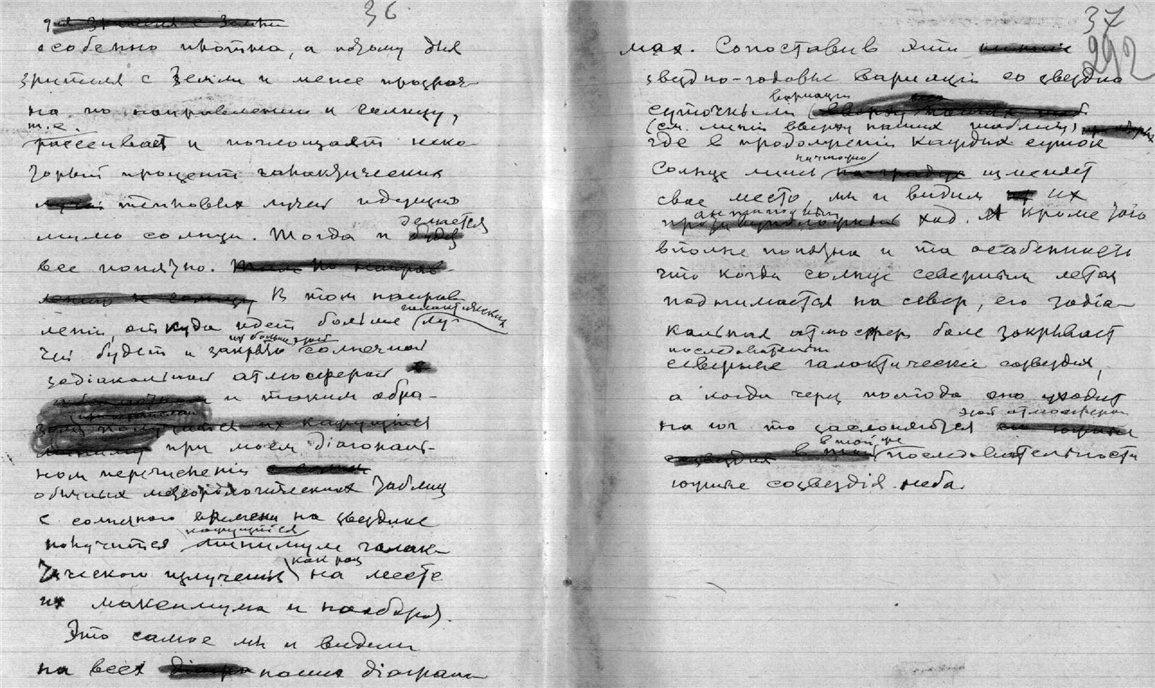 36
для зрителя с Земли
особенно плотна, а потому для
зрителя с Земли и менее прозрач-
на по направлению к солнцу,
т.е.
рассеивает и поглощает неко-
торый процент галактических
тепловых лучей идущих
мимо солнца. Тогда и делается
все понятно.
В том направ-
лении, откуда идет больше галактических лу-
чей будет и закрыто солнечной
зодiакальной атмосферой
и таким обра-
зом получится их кажущийся
минимум при моем дiагональ-
ном перечисленiи
обычных метеорологических таблиц
с солнечного времени на звездное
получится кажущийся минимум галак-
тического излученiя как раз на месте
их максимума и наоборот.
Это самое мы и видели
на всех наших дiаграм-
37
292
мах. Сопоставив эти
звездно-годовые варiацiи со звездно
суточными варiации
(см. линiи вверху наших таблиц)
где в продолженiи каждых суток
Солнце лишь ничтожно изменяет
свое место, мы и видим их
ход. Кроме того
вполне понятна и та особенность
что когда солнце северным летом
поднимается на север, его зодiа-
кальная атмосфера боле закрывает
последовательно
северные галактическiе созвездiя,
а когда через полгода оно уходит
на юг то заслоняются этой атмосферой
в той же последовательности
южные созвездiя неба.